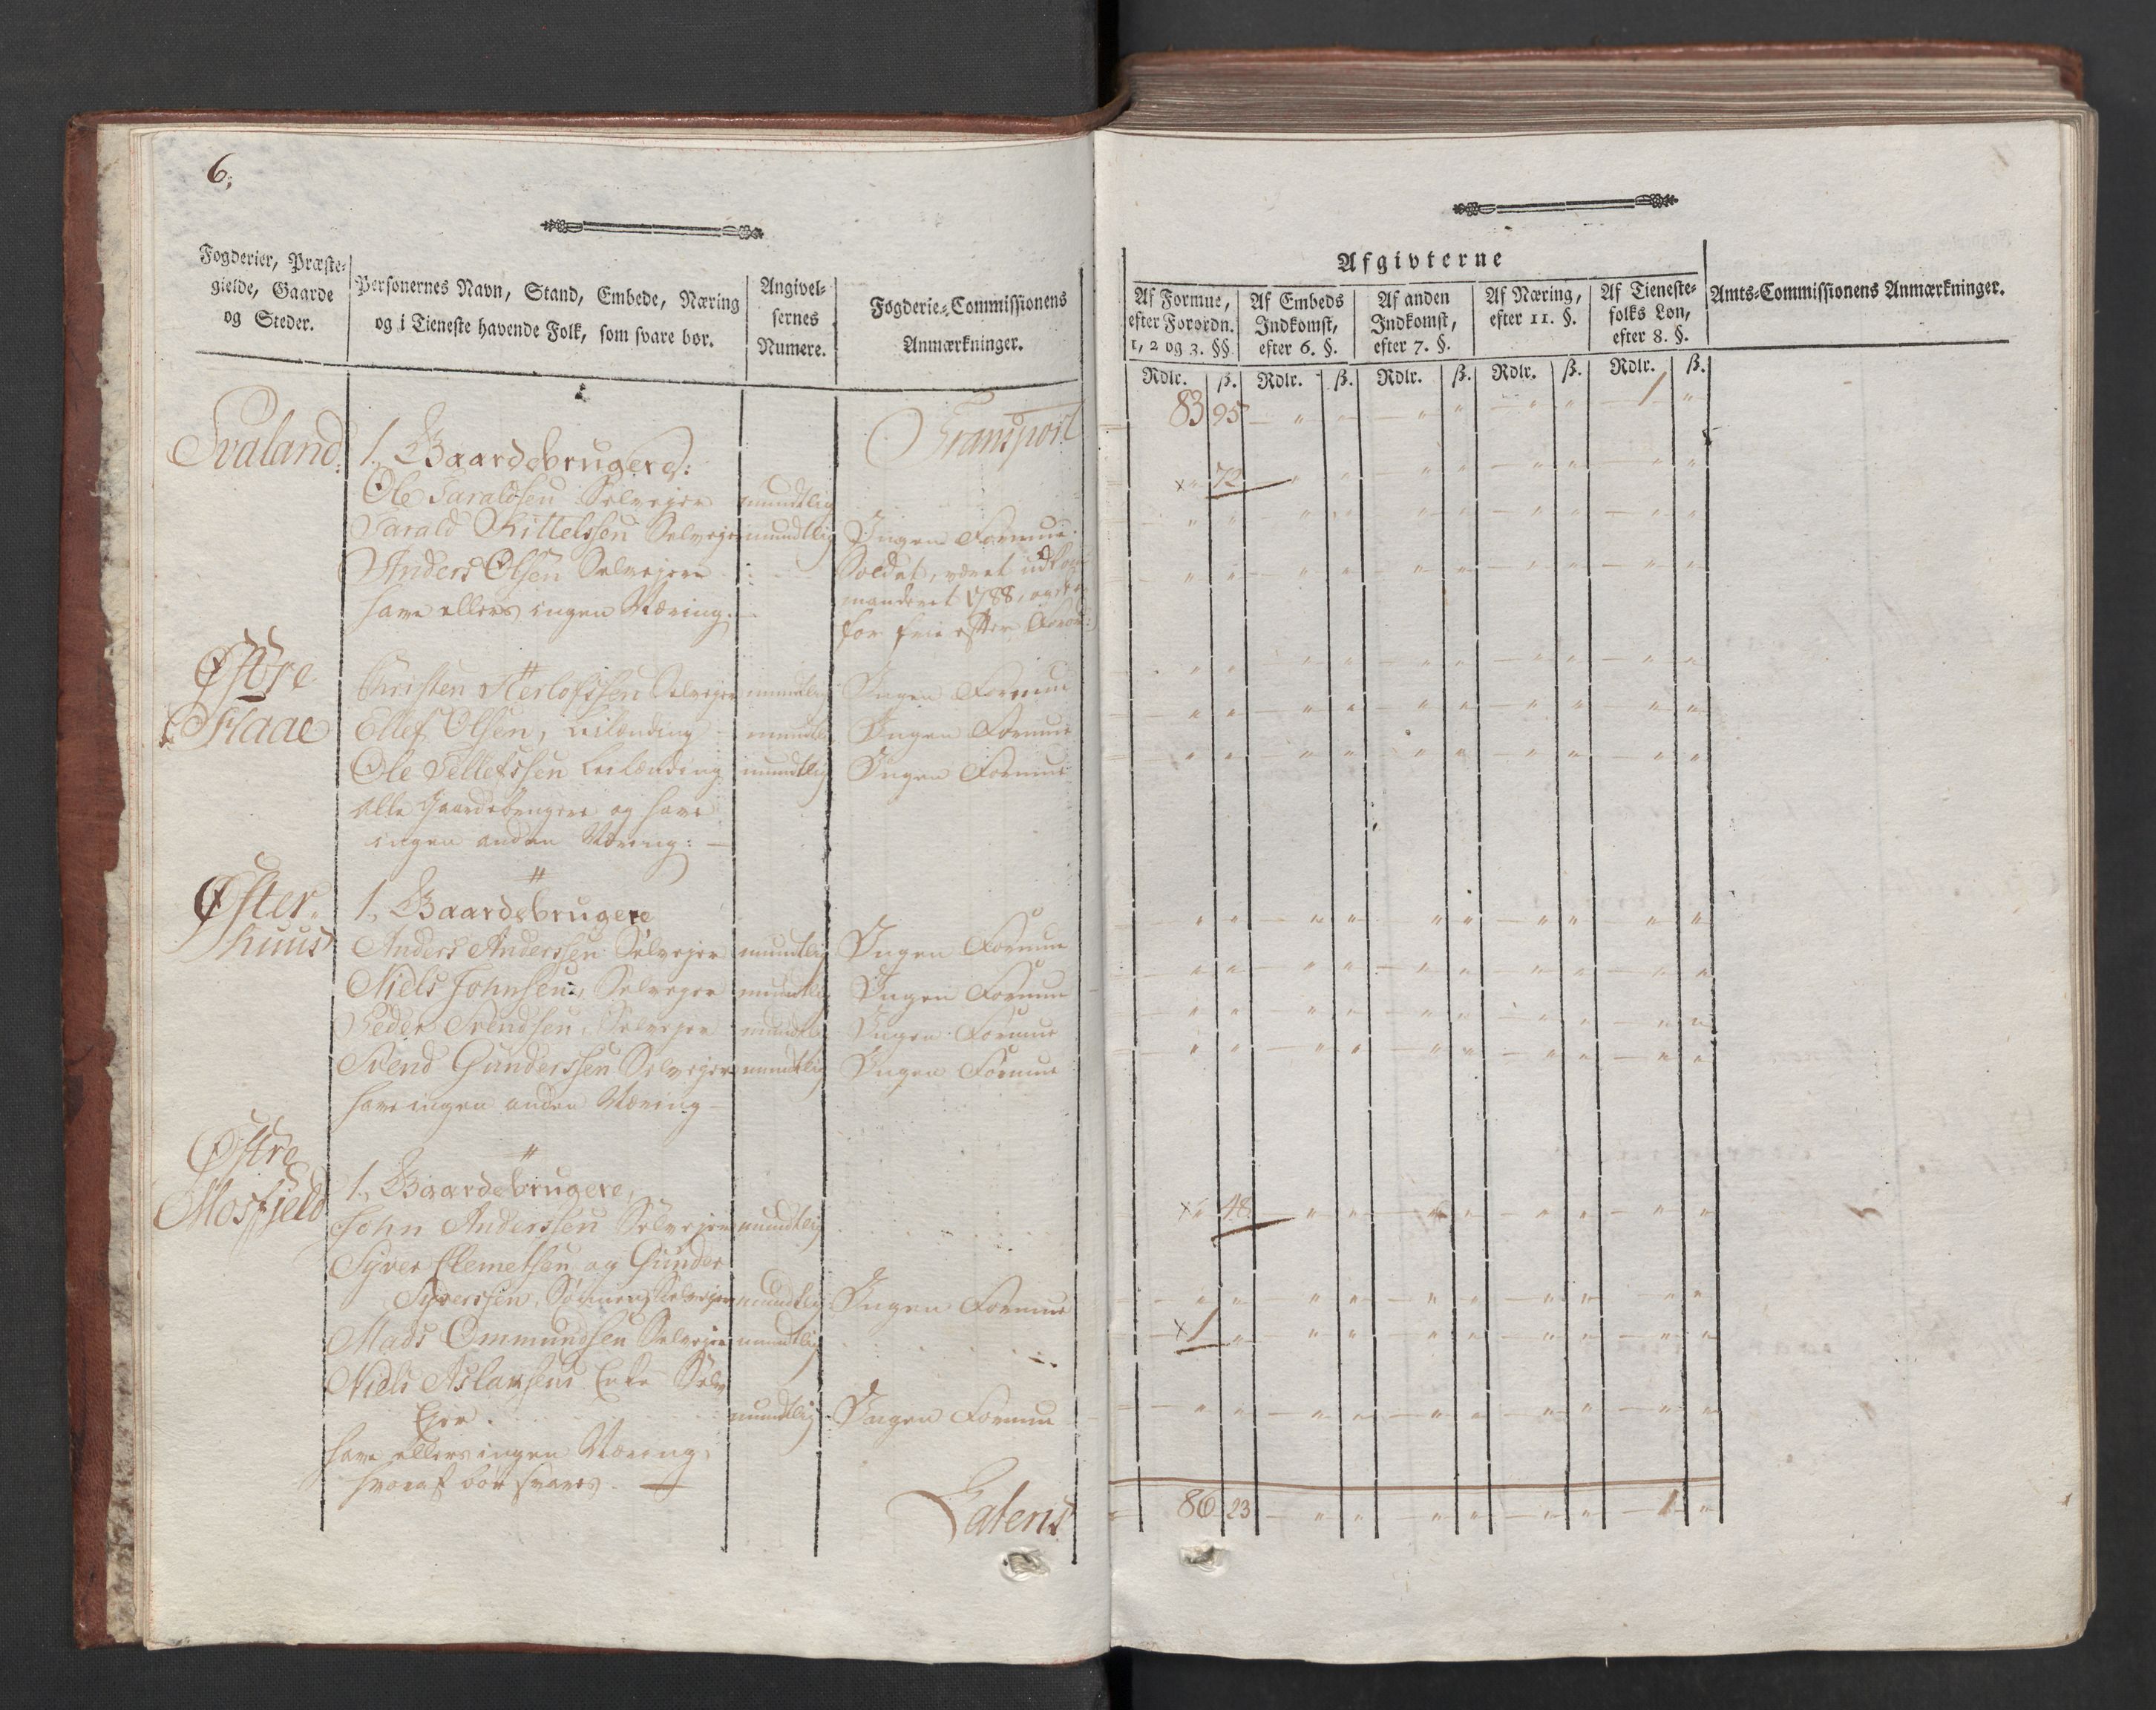 6.
Fogderier, Præste-
gielde, Gaarde
og Steder.
Personernes Navn, Stand, Embede, Næring
og i Tieneste havende Folk, som svare bør.
Angivel-
sernes
Numere.
Fogderie-Commissionens
Anmærkninger.
Afgivterne
Af Formue,
efter Forordn.
1, 2 og 3. §§.
Af Embeds
Indkomst,
efter 6. §.
Af anden
Indkomst,
efter 7. §.
Af Næring,
efter 11. §.
Af Tieneste-
folks Løn,
efter 8. §.
Amts-Commissionens Anmærkninger.
Rdlr. ß. Rdlr. ß. Rdlr. ß. Rdlr. ß. Rdlr. ß.
Transport 83 95 — " — — " " — " " — 1 "
Svaland. 1., Gaardebrugere:
Ole Taraldsen Selvejer mundtlig × " 72
Tarald Kittelssen Selvejer mundtlig Ingen Formue.
Anders Olsen Selvejere Soldat, været udkom-
have ellers ingen Næring. manderet 1788,
for frie efter Forord:
Østre
Haae
Christen Herlofssen Selvejer mundtlig Ingen Formue
Ellef Olsen, Leilænding mundtlig Ingen Formue
Ole Tellefssen Leilænding mundtlig Ingen Formue
Alle Gaardebrugere og have
ingen anden Næring: —
Øster-
huus
1., Gaardebrugere
Anders Anderssen Selvejer mundtlig Ingen Formue
Niels Johnsen, Selvejer mundtlig Ingen Formue
Peder Svendsen, Selvejer mundtlig Ingen Formue
Svend Gunderssen Selvejer mundtlig Ingen Formue
have ingen anden Næring —
Østre
Mosfjeld
1., Gaardebrugere,
John Anderssen Selvejer mundtlig × " 48.
Syver Clemetsen og Gunder
Syverssen, Selvejer mundtlig Ingen Formue
Mads Ommundsen Selvejer mundtlig × 1 "
Niels Aslaksens Enke Selv
Ejer. mundtlig Ingen Formue
have ellers ingen Næring,
hvoraf bør svares. —
Lateris 86 23 — " " — " " — " " — 1 "